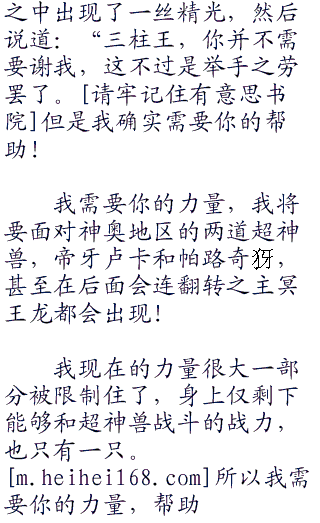 之中出现了一丝精光，然后
说道：“三柱王，你并不需
要谢我，这不过是举手之劳
罢了。[请牢记住有意思书
院]但是我确实需要你的帮
助！
我需要你的力量，我将
要面对神奥地区的两道超神
兽，帝牙卢卡和帕路奇犽，
甚至在后面会连翻转之主冥
王龙都会出现！
我现在的力量很大一部
分被限制住了，身上仅剩下
能够和超神兽战斗的战力，
也只有一只。
[m.heihei168.com]所以我需
要你的力量，帮助